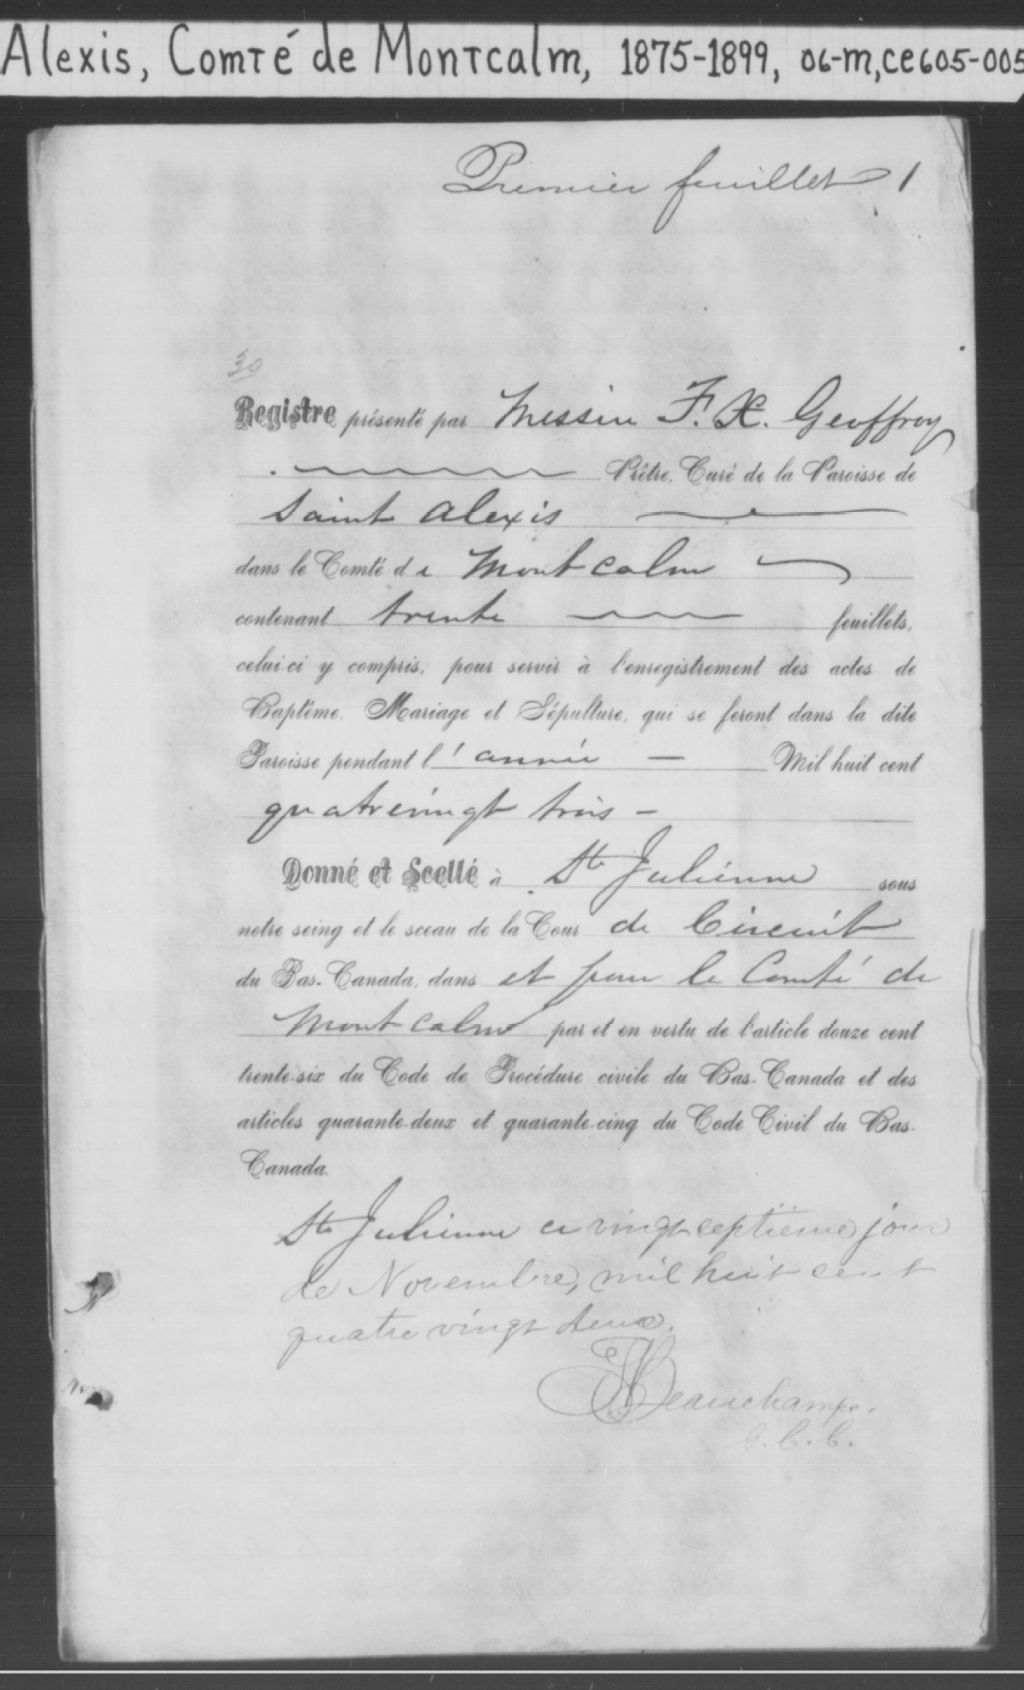 Alexis, Comté de Montcalm, 1875-1899, 06-m,ce605-005
Premier feuillet 1
30
Registre présenté par Messire F. X. Geoffroy
Prêtre, Curé de la Paroisse de
Saint Alexis
dans le Comté de Montcalm
contenant trente feuillets,
celui-ci y compris, pour servir à l'enregistrement des actes de
Baptême, Mariage et Sépulture, qui se feront dans la dite
Paroisse pendant l'année — Mil huit cent
quatrevingt trois —
Donné et Scellé à Ste Julienne sous
notre seing et le sceau de la Cour de Circuit
du Bas-Canada, dans et pour le Comté de
Montcalm par et en vertu de l'article douze cent
trente-six du Code de Procédure civile du Bas-Canada et des
articles quarante-deux et quarante-cinq du Code Civil du Bas-
Canada.
Ste Julienne ce vingt septième jour
de Novembre, mil huit cent
quatre vingt deux.
Beauchamp.
C. C.